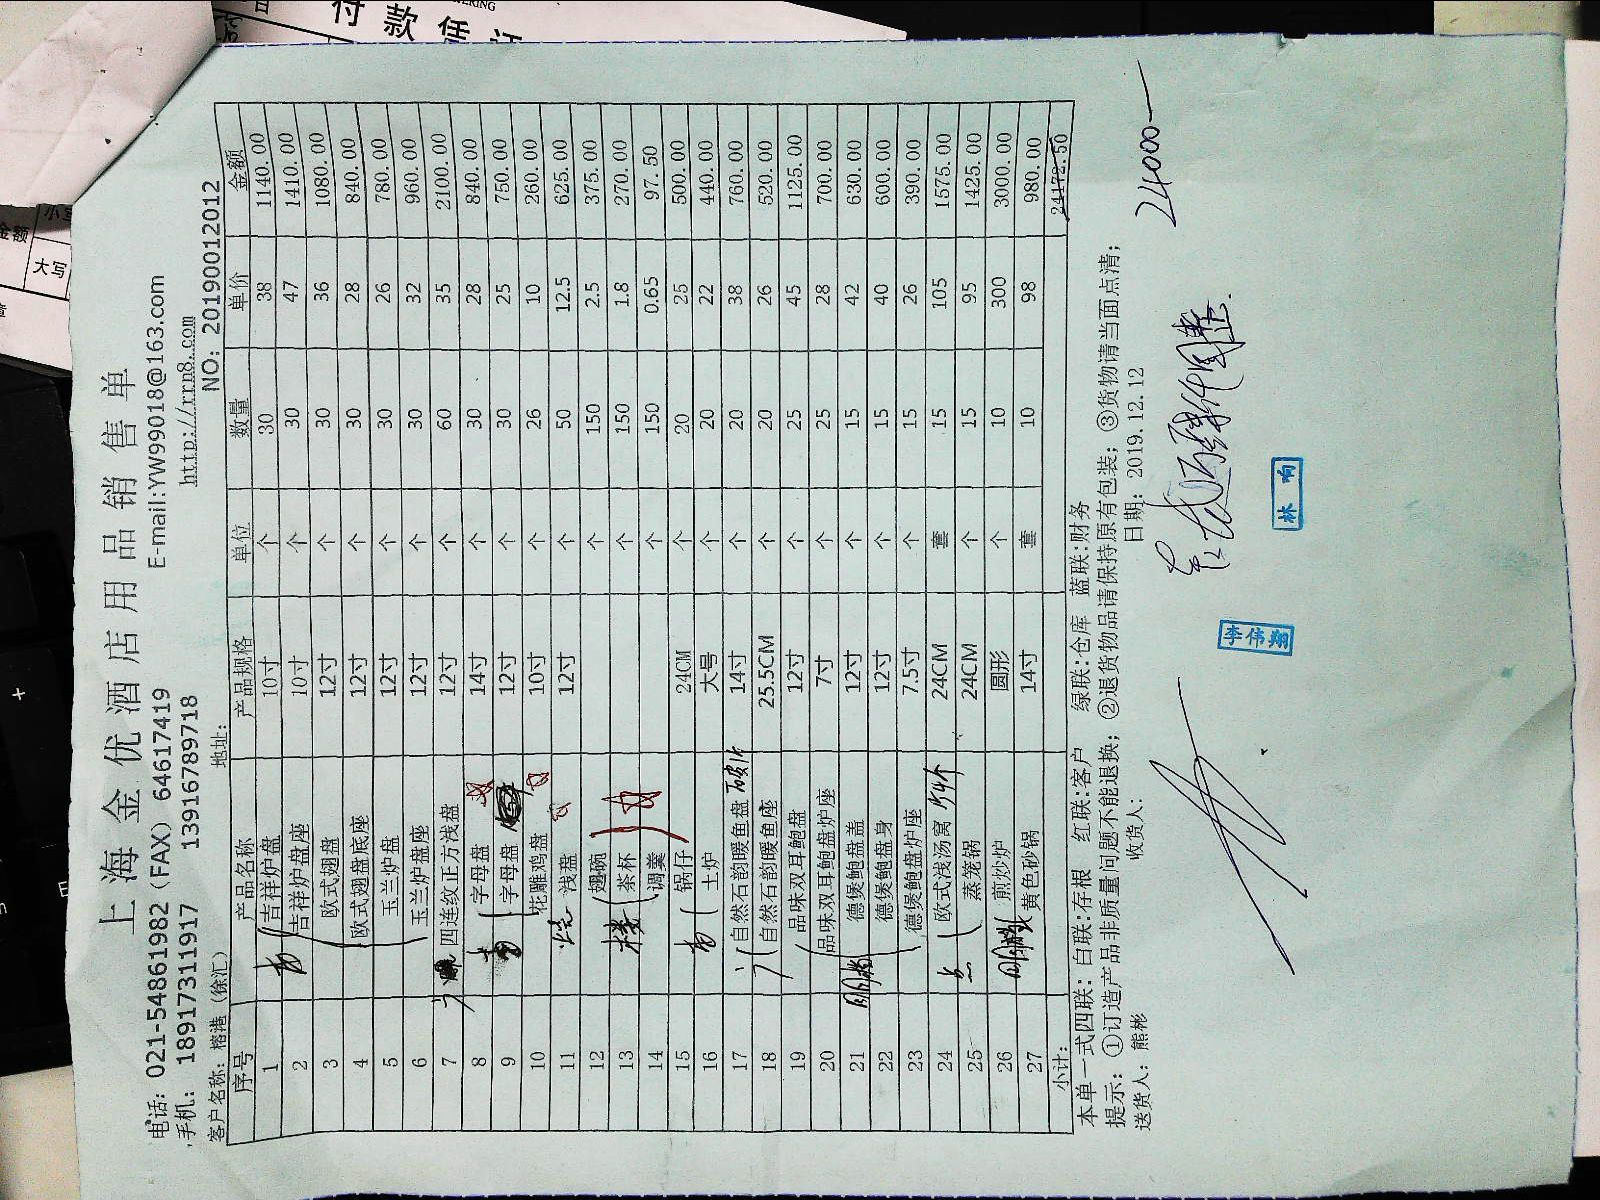 付款凭证
金额
大写
上海金优酒店用品销售单
电话: 021-54861982 (FAX) 64617419 E-mail:YW99018@163.com
手机: 18917311917 13916789718 http://rrn8.com
客户名称: 榕港 (徐汇) 地址: NO: 20190012012
序号 产品名称 产品规格 单位 数量 单价 金额
1 吉祥炉盘 10寸 个 30 38 1140.00
2 吉祥炉盘座 10寸 个 30 47 1410.00
3 欧式翅盘 12寸 个 30 36 1080.00
4 欧式翅盘底座 12寸 个 30 28 840.00
5 玉兰炉盘 12寸 个 30 26 780.00
6 玉兰炉盘座 12寸 个 30 32 960.00
7 四连纹正方浅盘 12寸 个 60 35 2100.00
8 字母盘 14寸 个 30 28 840.00
9 字母盘 12寸 个 30 25 750.00
10 花雕鸡盘 10寸 个 26 10 260.00
11 浅盘 12寸 个 50 12.5 625.00
12 翅碗 个 150 2.5 375.00
13 茶杯 个 150 1.8 270.00
14 调羹 个 150 0.65 97.50
15 锅仔 24CM 个 20 25 500.00
16 土炉 大号 个 20 22 440.00
17 自然石韵暖鱼盘 14寸 个 20 38 760.00
18 自然石韵暖鱼座 25.5CM 个 20 26 520.00
19 品味双耳鲍盘 12寸 个 25 45 1125.00
20 品味双耳鲍盘炉座 7寸 个 25 28 700.00
21 德煲鲍盘盖 12寸 个 15 42 630.00
22 德煲鲍盘身 12寸 个 15 40 600.00
23 德煲鲍盘炉座 7.5寸 个 15 26 390.00
24 欧式浅汤窝 24CM 套 15 105 1575.00
25 蒸笼锅 24CM 个 15 95 1425.00
26 煎炒炉 圆形 个 10 300 3000.00
27 黄色砂锅 14寸 套 10 98 980.00
小计: 24172.50
本单一式四联: 白联:存根 红联:客户 绿联:仓库 蓝联:财务
提示: ①订造产品非质量问题不能退换; ②退货物品请保持原有包装; ③货物请当面点清;
送货人: 熊彬 收货人: 日期: 2019.12.12
24000—
李伟翔
林响